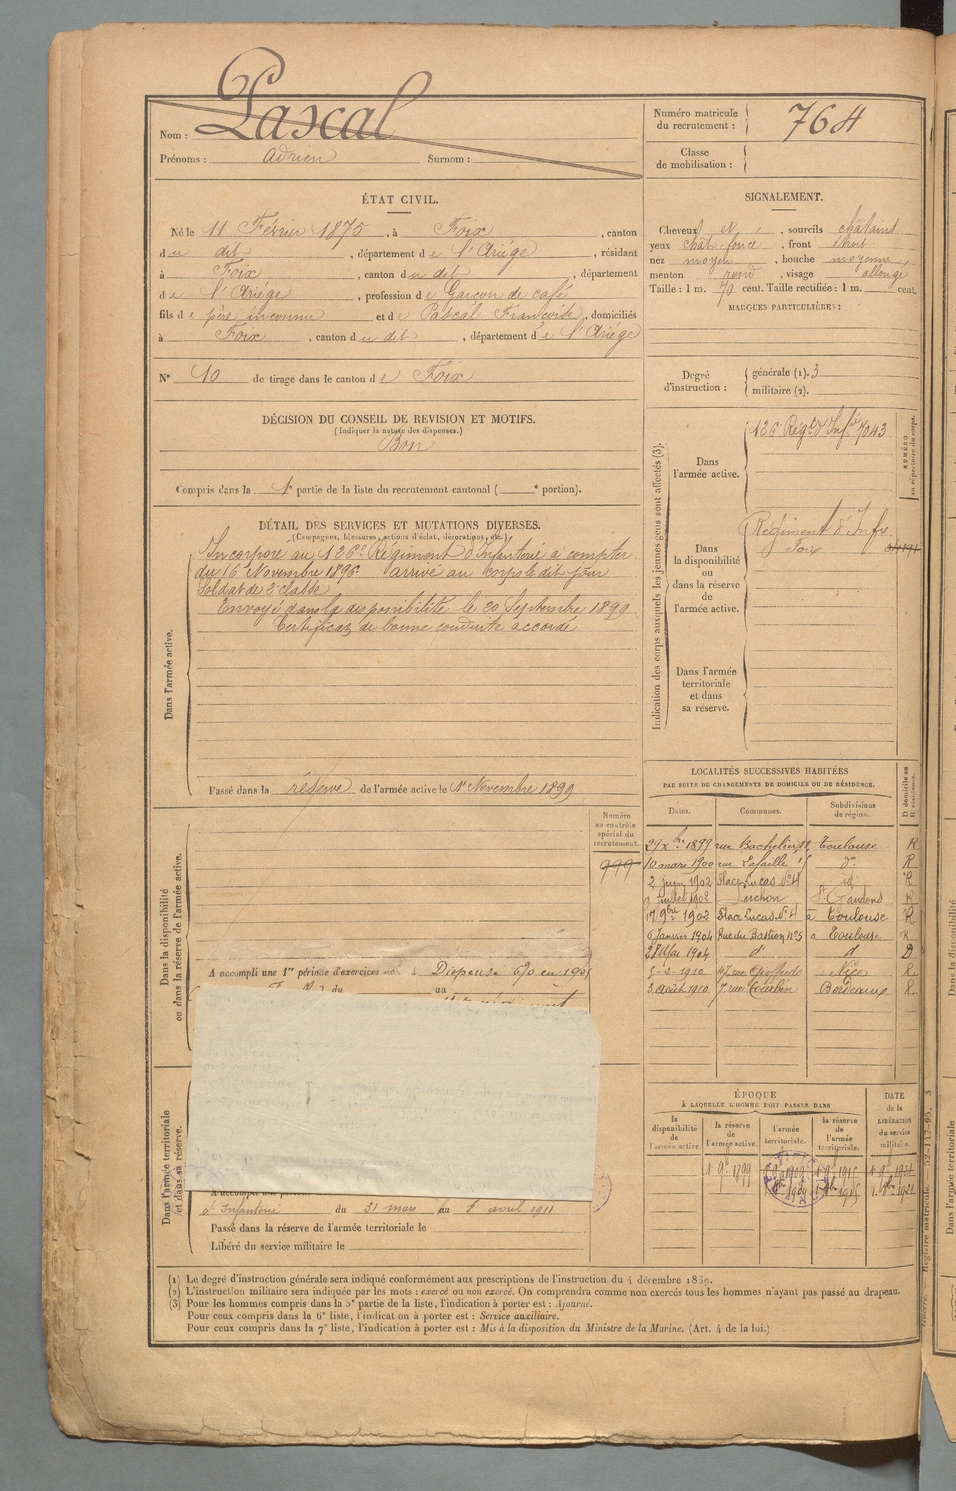 Nom : Pascal
Prénoms : Adrien Surnom :
Numéro matricule du recrutement : 764
Classe de mobilisation :
ÉTAT CIVIL.
Né le 11 Février 1875, à Foix, canton
du dit, département de l'Ariège, résidant
à Foix, canton du dit, département
de l'Ariège, profession de Garçon de café
fils de père inconnu et de Pascal Françoise, domiciliés
à Foix, canton du dit, département de l'Ariège
N° 40 de tirage dans le canton de Foix
SIGNALEMENT.
Cheveux et, sourcils châtains
yeux chât. foncé, front étroit
nez moyen, bouche moyenne,
menton rond, visage allongé
Taille : 1 m. 70 cent. Taille rectifiée : 1 m. cent.
MARQUES PARTICULIÈRES :
Degré d'instruction : générale (1). 3
militaire (2).
DÉCISION DU CONSEIL DE REVISION ET MOTIFS.
(Indiquer la nature des dispenses.)
Bon
Compris dans la 1e partie de la liste du recrutement cantonal ( e portion).
DÉTAIL DES SERVICES ET MUTATIONS DIVERSES.
(Campagnes, blessures, actions d'éclat, décorations, etc.)
Dans l'armée active.
Incorporé au 126e Régiment d'Infanterie à compter
du 16 Novembre 1896 arrivé au corps le dit jour
Soldat de 2e classe
Envoyé dans la disponibilité le 20 Septembre 1899
Certificat de bonne conduite accordé
Passé dans la réserve de l'armée active le 1er Novembre 1899
Indication des corps auxquels les jeunes gens sont affectés (3).
NUMÉRO au répertoire du corps.
Dans l'armée active.
126e Régt d'Infie 7043
Dans la disponibilité ou dans la réserve de l'armée active.
Régiment d'Infie
Foix
Dans l'armée territoriale et dans sa réserve.
LOCALITÉS SUCCESSIVES HABITÉES
PAR SUITE DE CHANGEMENTS DE DOMICILE OU DE RÉSIDENCE.
Dates. Communes. Subdivisions de région. D domicile ou R résidence.
29 Xbre 1899 rue Bachelier Toulouse R
10 mars 1900 rue Lafaille do R
2 juin 1902 Place Lucas No 4 id R
juillet 1902 St Gaudens R
17 9bre 1902 Place Lucas No 4 à Toulouse R
6 Janvier 1904 Rue du Bastion No 5 à Toulouse R
28 Mai 1904 do do D
5-2-1910 Nice R.
3 Août 1910 7 rue Courbin Bordeaux R.
Numéro au contrôle spécial du recrutement.
999
Dans la disponibilité ou dans la réserve de l'armée active.
A accompli une 1re période d'exercices Dispensé en 1905
du au
ÉPOQUE
À LAQUELLE L'HOMME DOIT PASSER DANS
DATE de la LIBÉRATION du service militaire.
la disponibilité de l'armée active. la réserve de l'armée active. l'armée territoriale. la réserve de l'armée territoriale.
1er 9bre 1899 1909 1915 1921
1909 1915 1921
Dans l'armée territoriale et dans sa réserve.
d'Infanterie du 31 mars au avril 1911
Passé dans la réserve de l'armée territoriale le
Libéré du service militaire le
(1) Le degré d'instruction générale sera indiqué conformément aux prescriptions de l'instruction du 4 décembre 1889.
(2) L'instruction militaire sera indiquée par les mots : exercé ou non exercé. On comprendra comme non exercés tous les hommes n'ayant pas passé au drapeau.
(3) Pour les hommes compris dans la 5e partie de la liste, l'indication à porter est : Ajourné.
Pour ceux compris dans la 6e liste, l'indication à porter est : Service auxiliaire.
Pour ceux compris dans la 7e liste, l'indication à porter est : Mis à la disposition du Ministre de la Marine. (Art. 4 de la loi.)